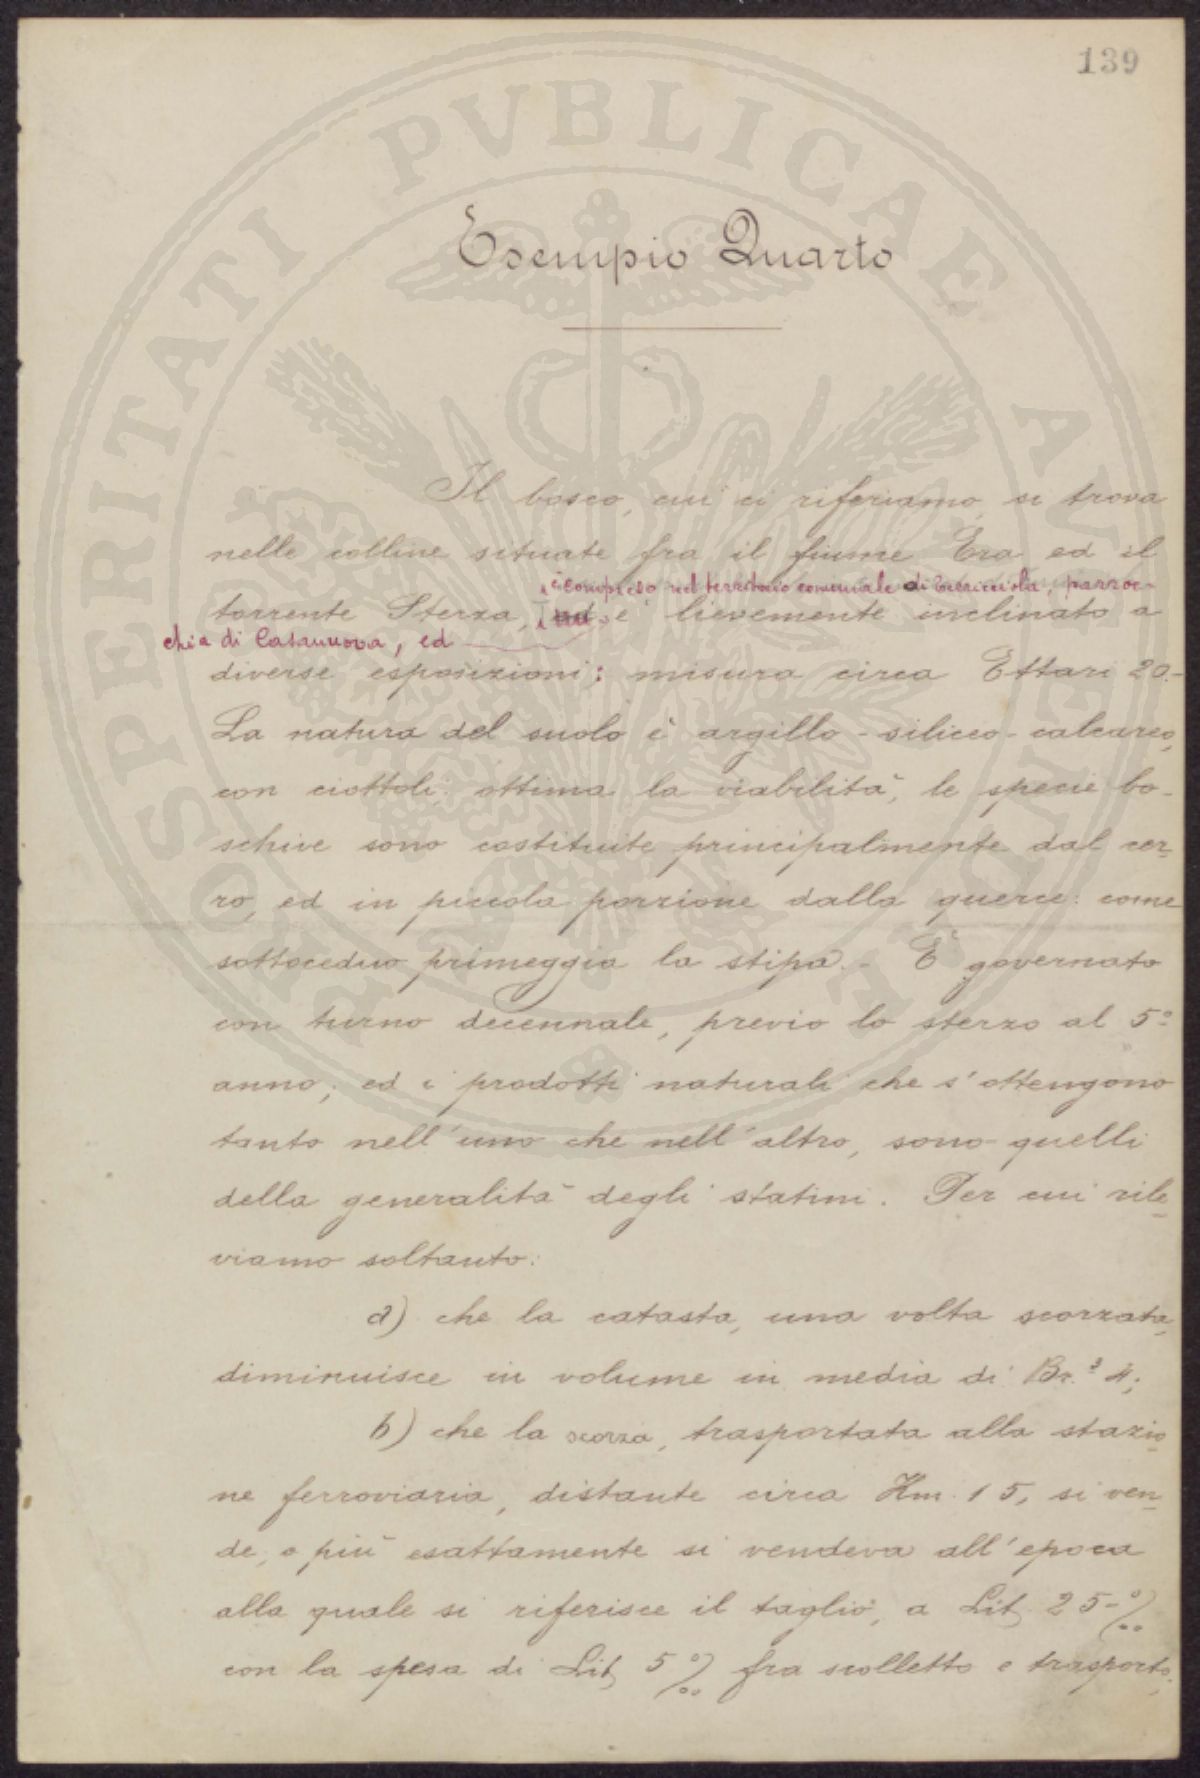 139
PROSPERITATI PVBLICAE AVGENDAE
Esempio Quarto
Il bosco, cui ci riferiamo, si trova
nelle colline situate fra il fiume Era ed il
è compreso nel territorio comunale di Terricciola, parroc-
torrente Sterza, è lievemente inclinato a
chia di Casanuova, ed
diverse esposizioni; misura circa Ettari 20.-
La natura del suolo è argillo-siliceo-calcareo,
con ciottoli; ottima la viabilità, le specie bo-
schive sono costituite principalmente dal cer-
ro, ed in piccola porzione dalla querce: come
sottoceduo primeggia la stipa.- È governato
con turno decennale, previo lo sterzo al 5°
anno; ed i prodotti naturali che s'ottengono
tanto nell'uno che nell'altro, sono quelli
della generalità degli statini. Per cui rile-
viamo soltanto:
a) che la catasta, una volta scorzata,
diminuisce in volume in media di Br.³ 4;
b) che la scorza, trasportata alla stazio-
ne ferroviaria, distante circa Km. 15, si ven-
de, o più esattamente si vendeva all'epoca
alla quale si riferisce il taglio, a Lit 25-%00
con la spesa di Lit 5%00 fra scolletto e trasporto;